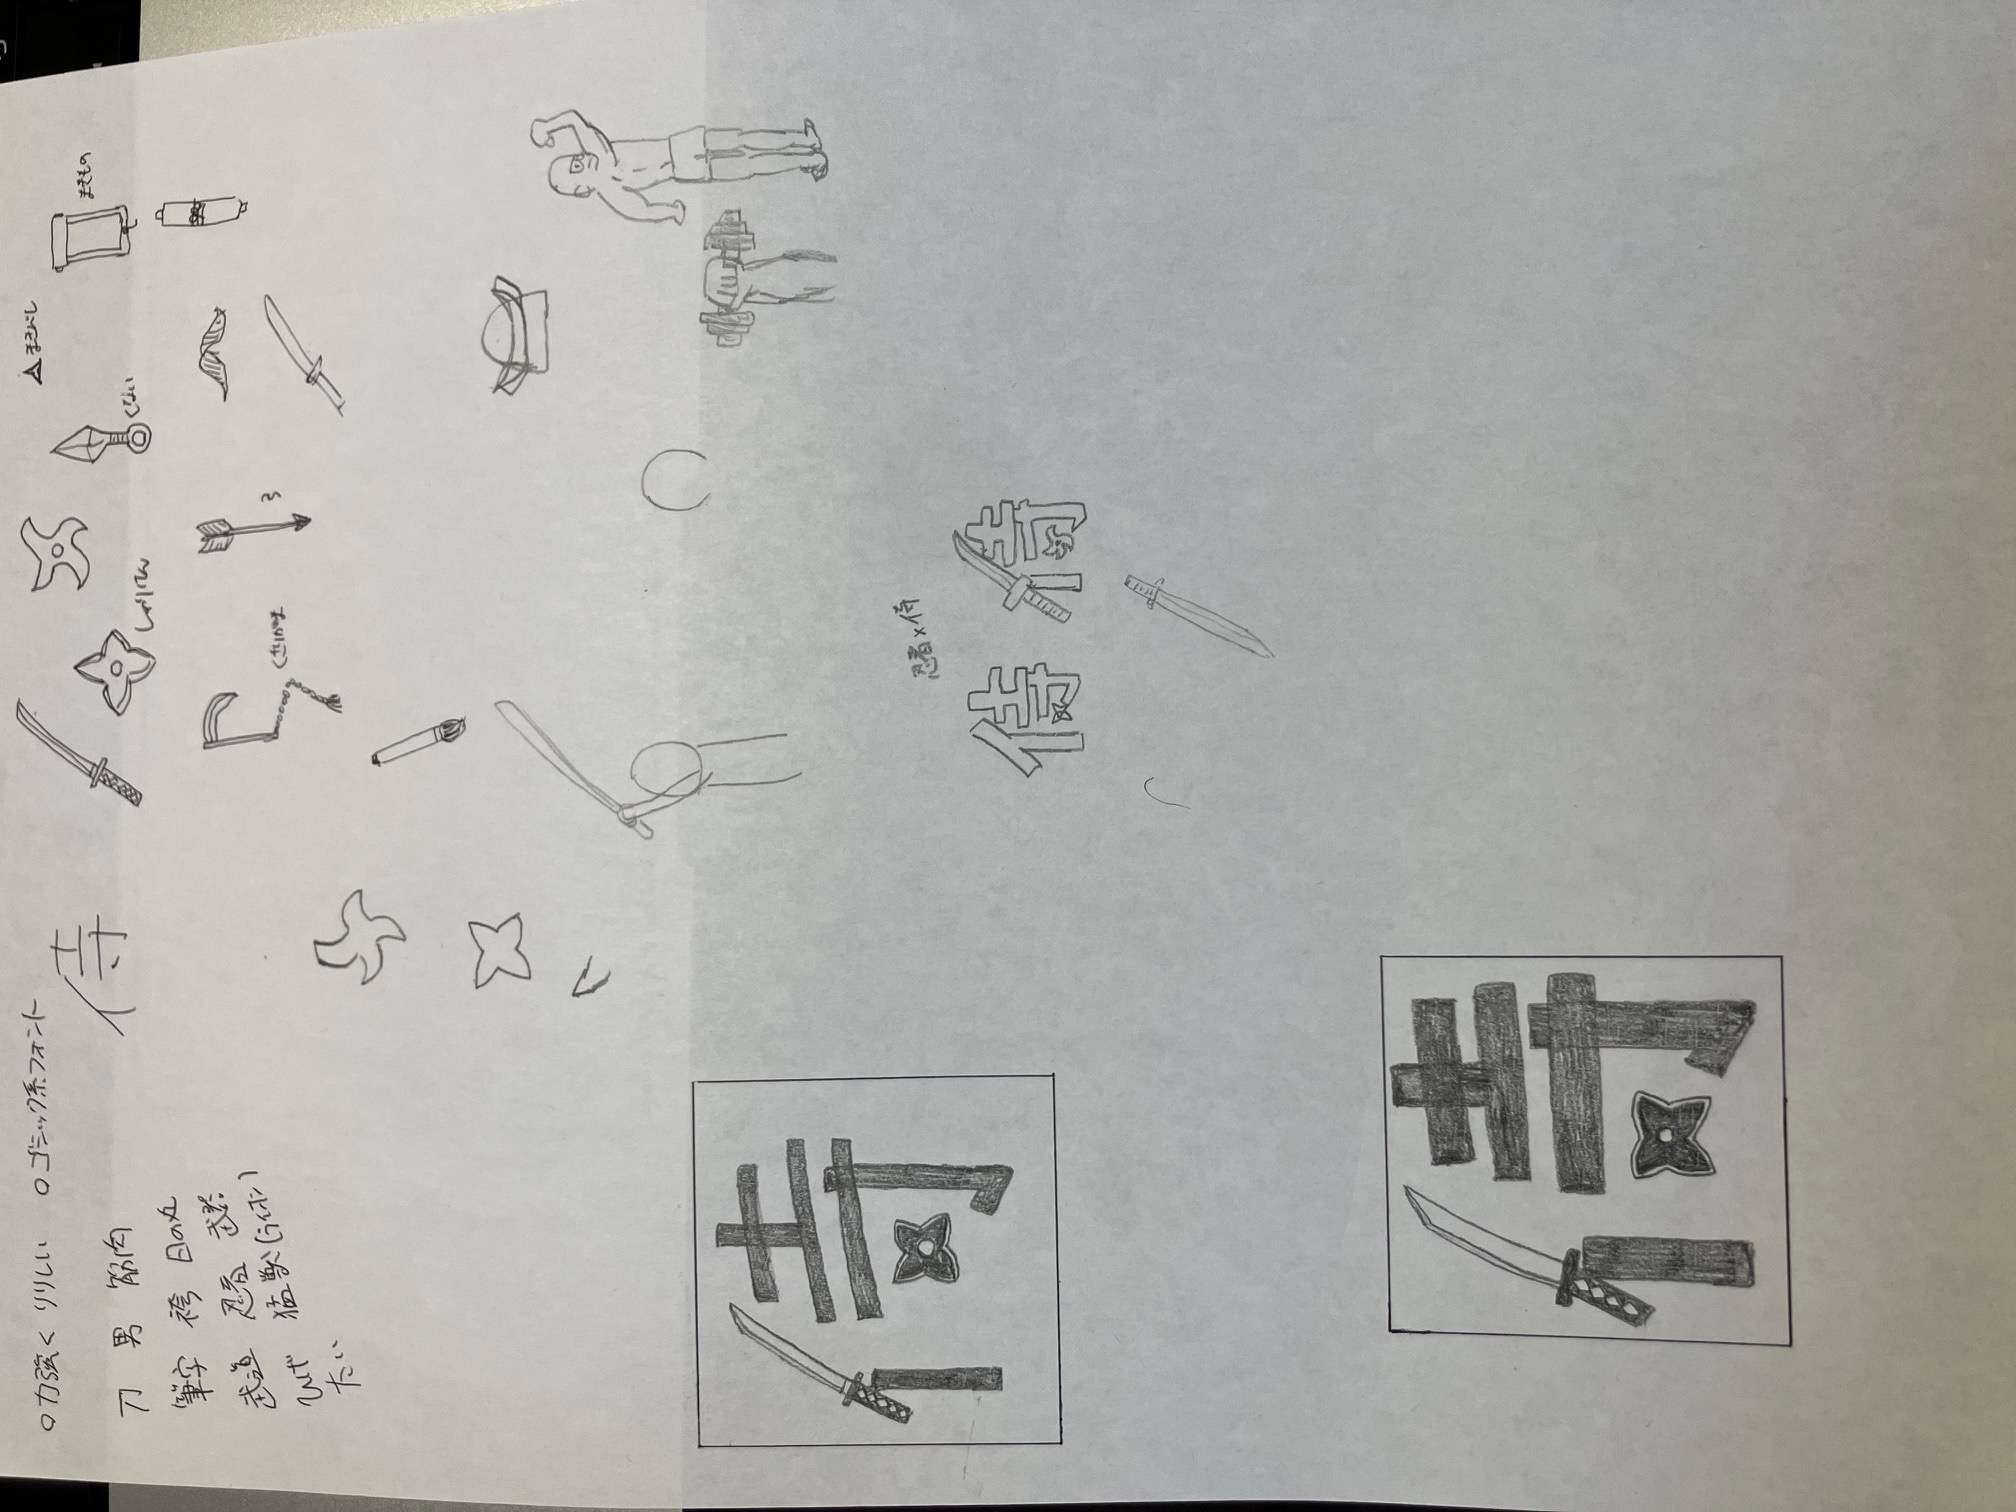 ○力強く りりしい ○ゴシック系フォント
刀 男 筋肉
筆字 袴 日の丸
武道 忍者 武器
ひげ 猛獣(ライオン)
たい
侍
しゅりけん
くない
まきびし
まきもの
くさりがま
弓
侍
忍者×侍
侍 侍
侍